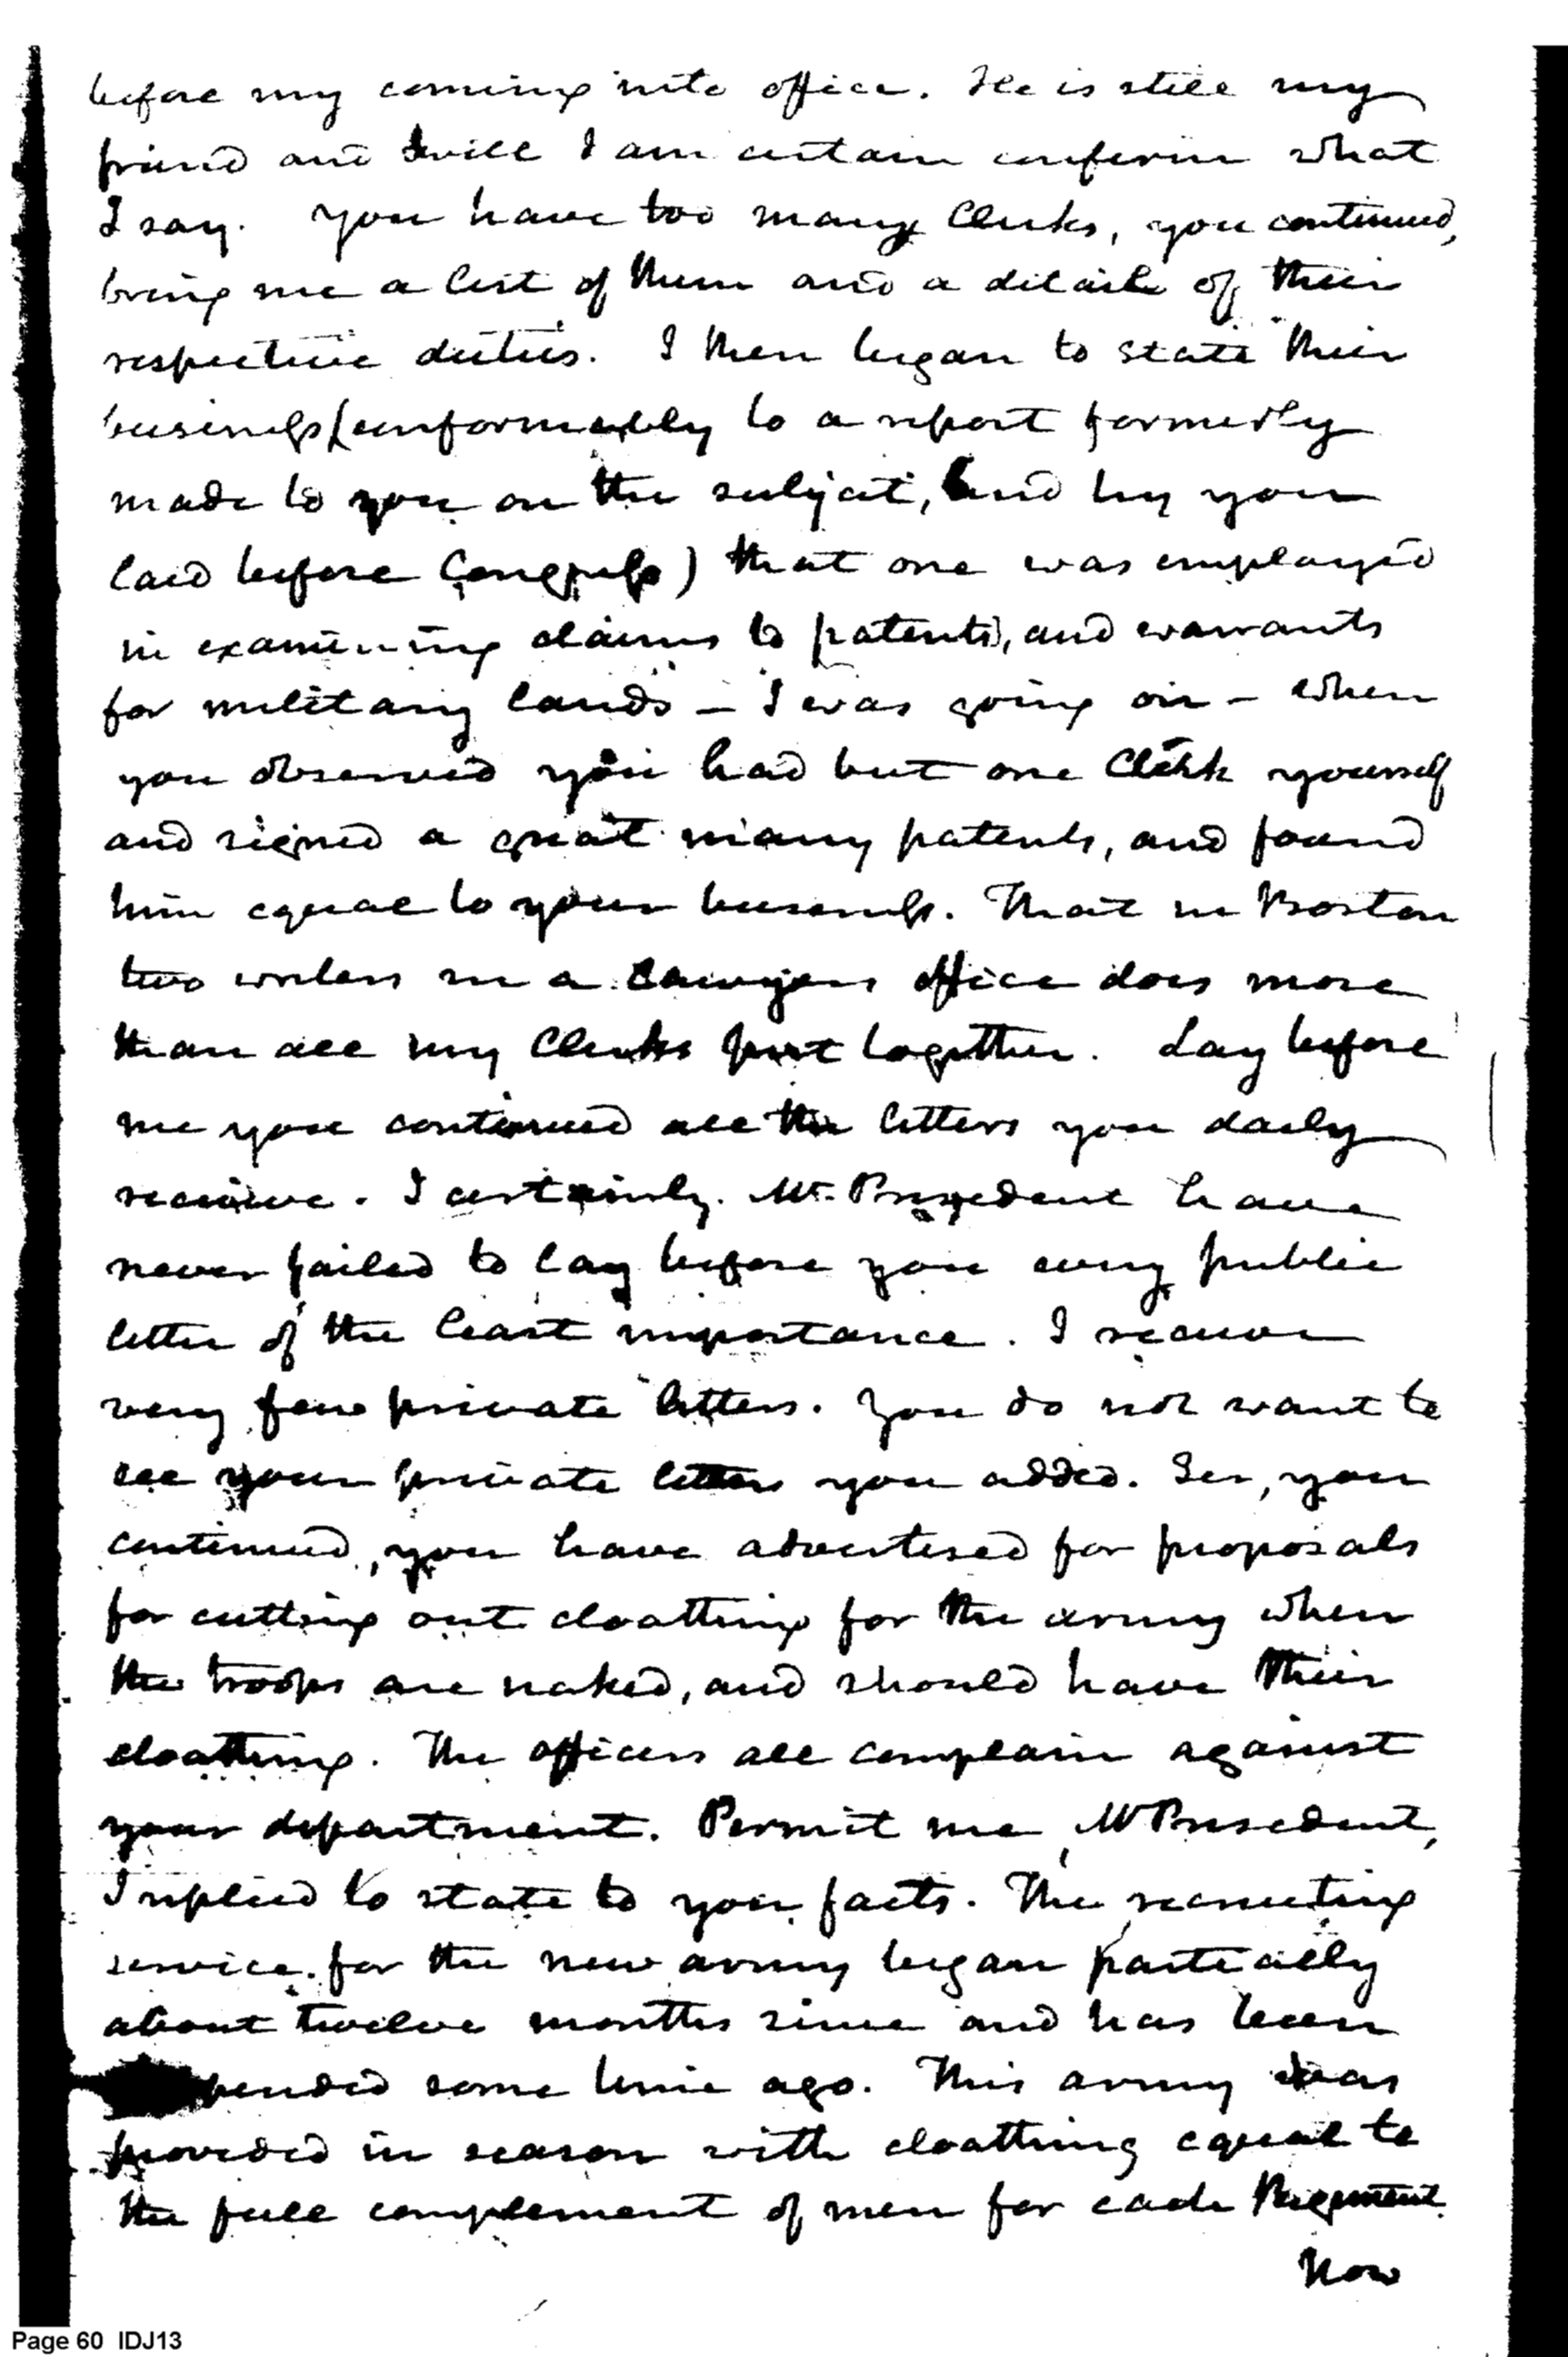 before my coming into office. He is still my
friend and will I am certain confirm what
I say. You have too many Clerks, you continued,
bring me a list of them and a detaile of their
respective duties. I then began to state their
business (conformably to a report formerly
made to you on the subject, and by you
laid before Congress) that one was employed
in examining claims to patents, and warrants
for military lands – I was going on – when
you observed you had but one Clerk yourself
and signed a great many patents, and found
him equal to your business. That in Boston
two writers in a Lawyers office does more
than all my Clerks put together. Lay before
me you continued all the letters you daily
receive. I certainly. Mr. President have
never failed to lay before you every public
letter of the least importance. I receive
very few private letters. You do not want to
see your private letters you added. Sir, you
continued, you have advertised for proposals
for cutting out cloathing for the army when
the troops are naked, and should have their
cloathing. The officers all complain against
your department. Permit me Mr President,
I replied to state to you facts. The recruiting
service for the new army began partially
about twelve months since and has been
pended some time ago. This army was
provided in season with cloathing equal to
the full complement of men for each Regiment.
Now
Page 60 IDJ13